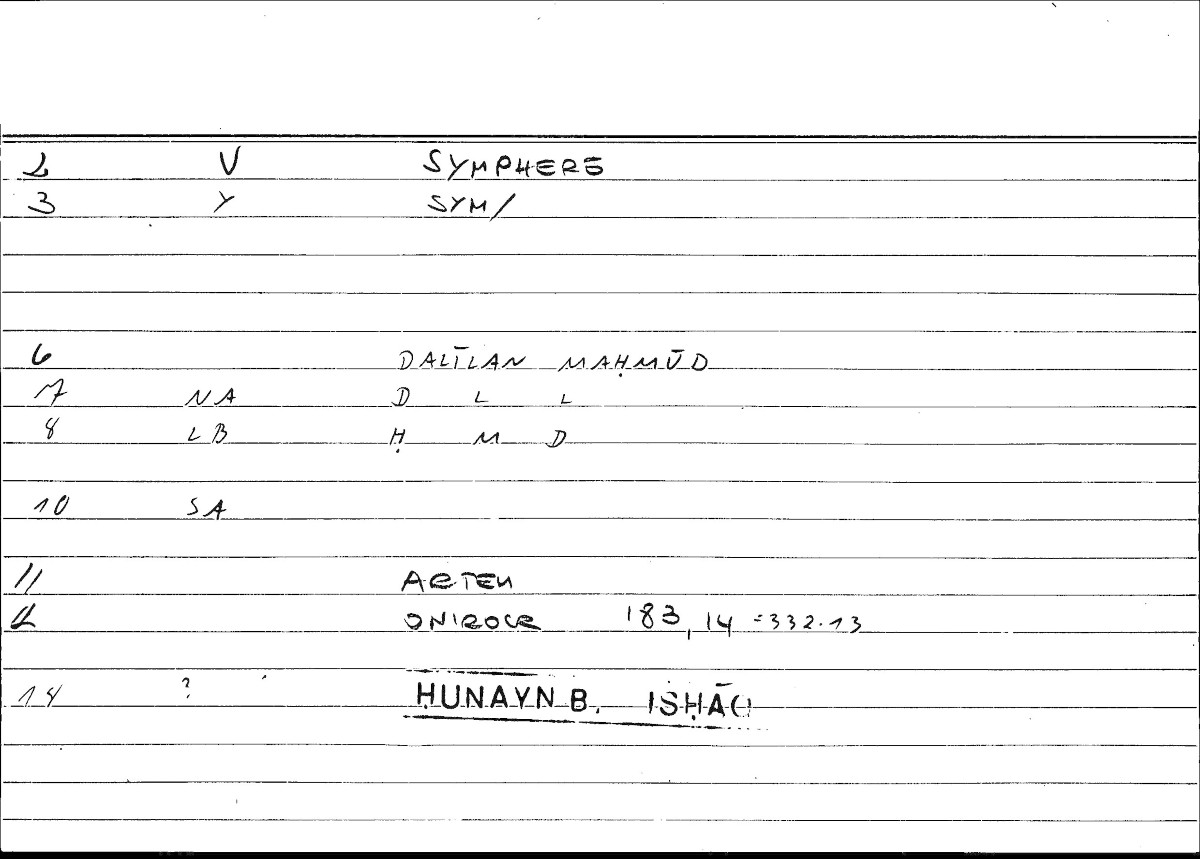 2 V SYMPHERE
3 Y SYM/
6 DALĪLAN MAḤMŪD
7 NA D L L
8 LB Ḥ M D
10 SA
11 ARTEM
12 ONIROCR 183,14 = 332.13
14 ? ḤUNAYN B. ISḤĀQ